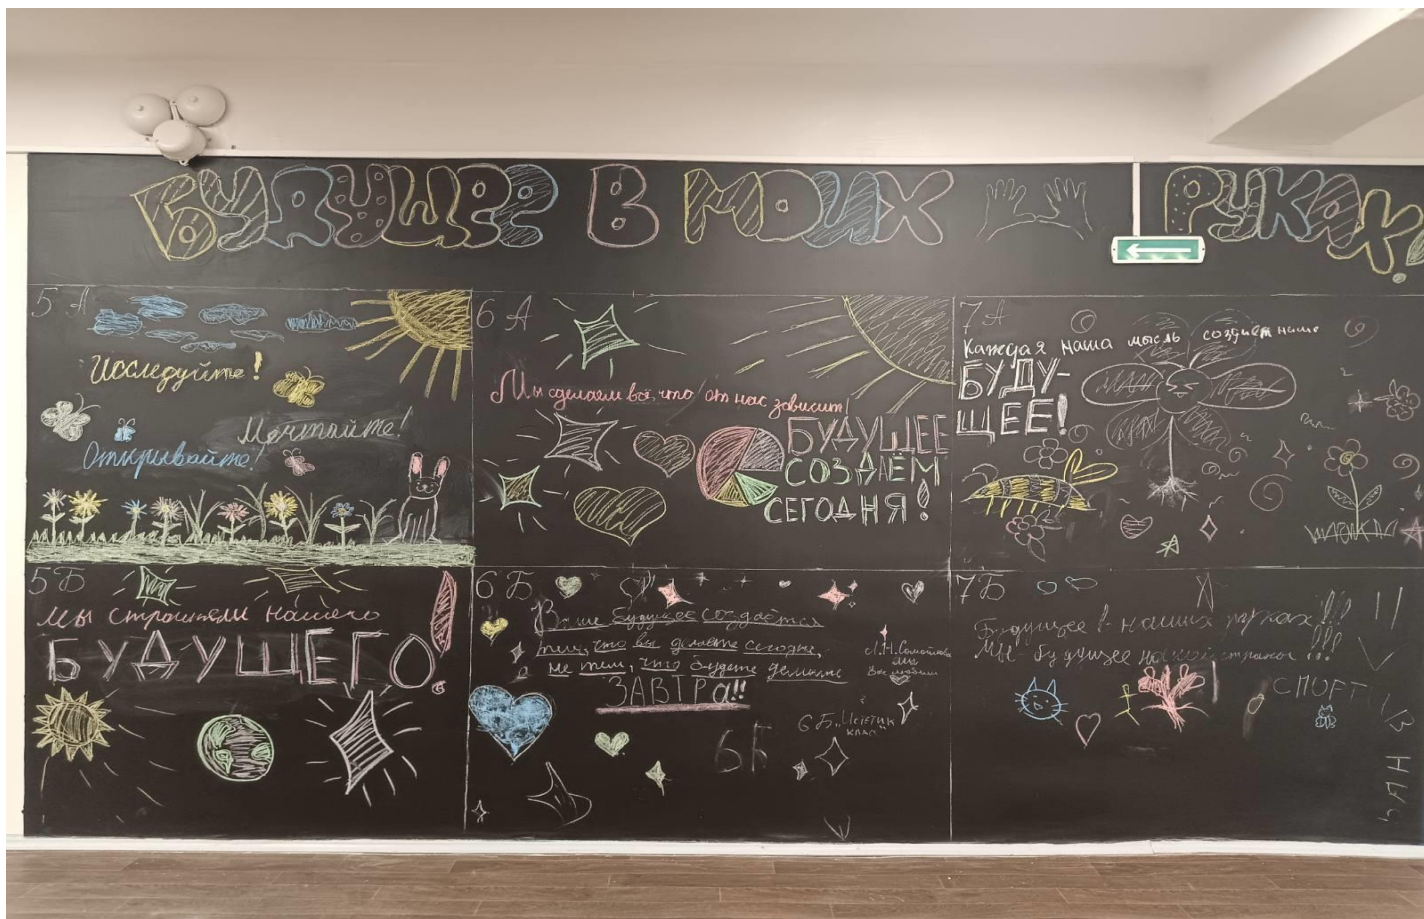 БУДУЩЕЕ В МОИХ РУКАХ!
5 А
Исследуйте!
Мечтайте!
Открывайте!
6 А
Мы сделаем всё, что от нас зависит!
БУДУЩЕЕ
СОЗДАЁМ
СЕГОДНЯ!
7 А
Каждая наша мысль создаёт наше
БУДУ-
ЩЕЕ!
5 Б
Мы строители нашего
БУДУЩЕГО!
6 Б
Ваше будущее создаётся
тем, что вы делаете сегодня,
не тем, что будете делать
ЗАВТРА!!
Л.Н.
мы
Вас любим
6 Б
класс
6 Б
7 Б
Будущее в наших руках!!!
Мы будущее нашей страны!!!
СПОРТ